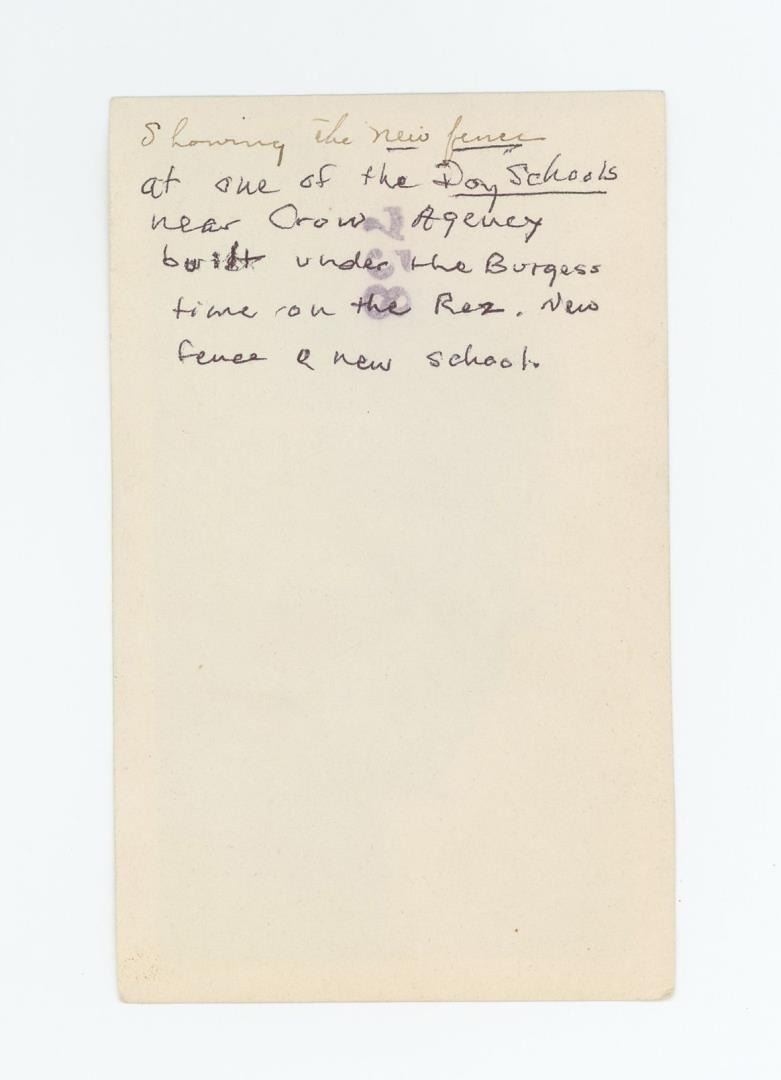 Showing the new fence
at one of the "Day" Schools
near Crow Agency
built under the Burgess
time on the Rez. New
fence & new school.
758